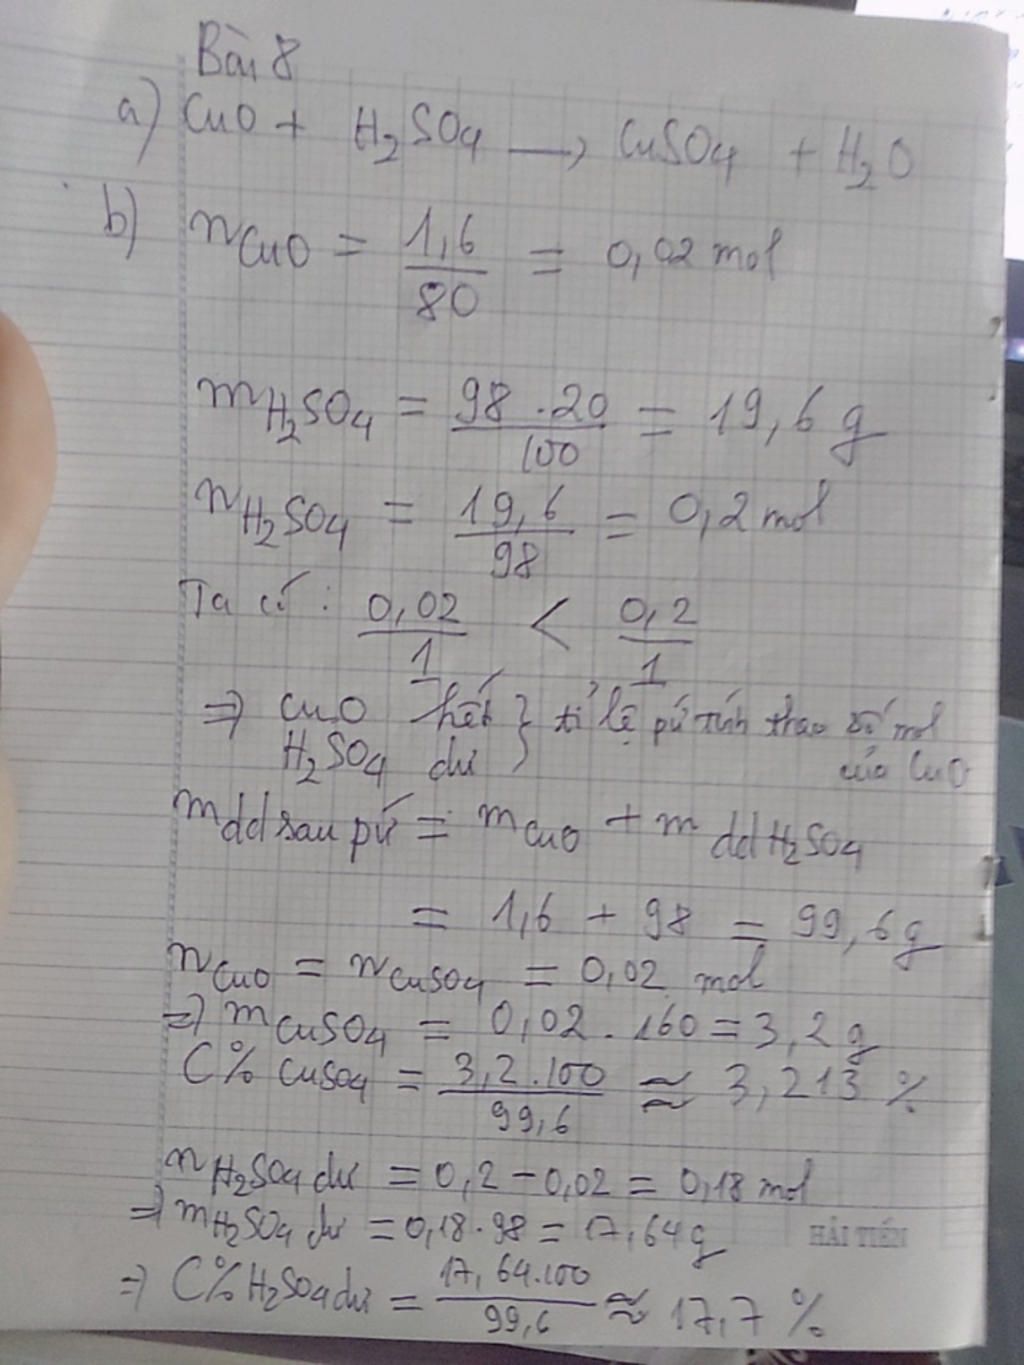 Bài 8
a) CuO + H₂SO₄ → CuSO₄ + H₂O
b) nCuO = 1,6/80 = 0,02 mol
mH₂SO₄ = 98.20/100 = 19,6 g
nH₂SO₄ = 19,6/98 = 0,2 mol
Ta có: 0,02/1 < 0,2/1
⇒ CuO hết } tỉ lệ pứ tính theo số mol
H₂SO₄ dư } của CuO
mdd sau pứ = mCuO + mddH₂SO₄
= 1,6 + 98 = 99,6g
nCuO = nCuSO₄ = 0,02 mol
⇒ mCuSO₄ = 0,02.160 = 3,2 g
C% CuSO₄ = 3,2.100/99,6 ≈ 3,213 %
nH₂SO₄ dư = 0,2 - 0,02 = 0,18 mol
⇒ mH₂SO₄ dư = 0,18.98 = 17,64g
HẢI TIẾN
⇒ C% H₂SO₄ dư = 17,64.100/99,6 ≈ 17,7 %